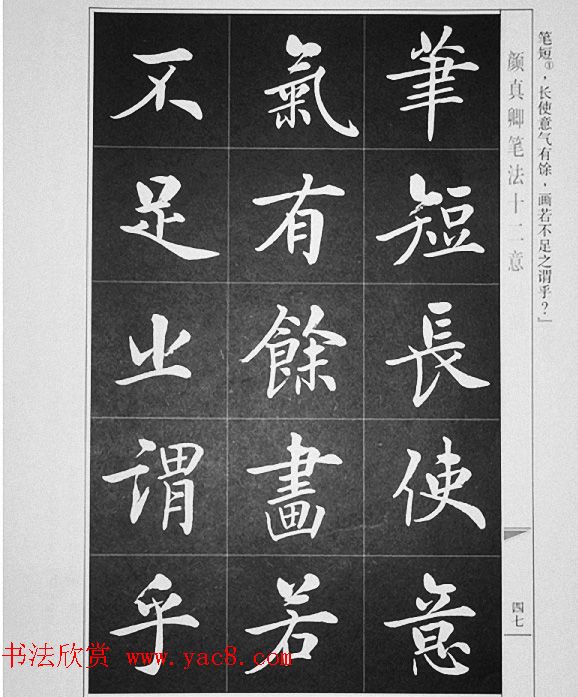 笔短①，长使意气有馀，画若不足之谓乎？」
颜真卿笔法十二意
筆短長使意
氣有餘畫若
不足之謂乎
四七
书法欣赏 www.yac8.com